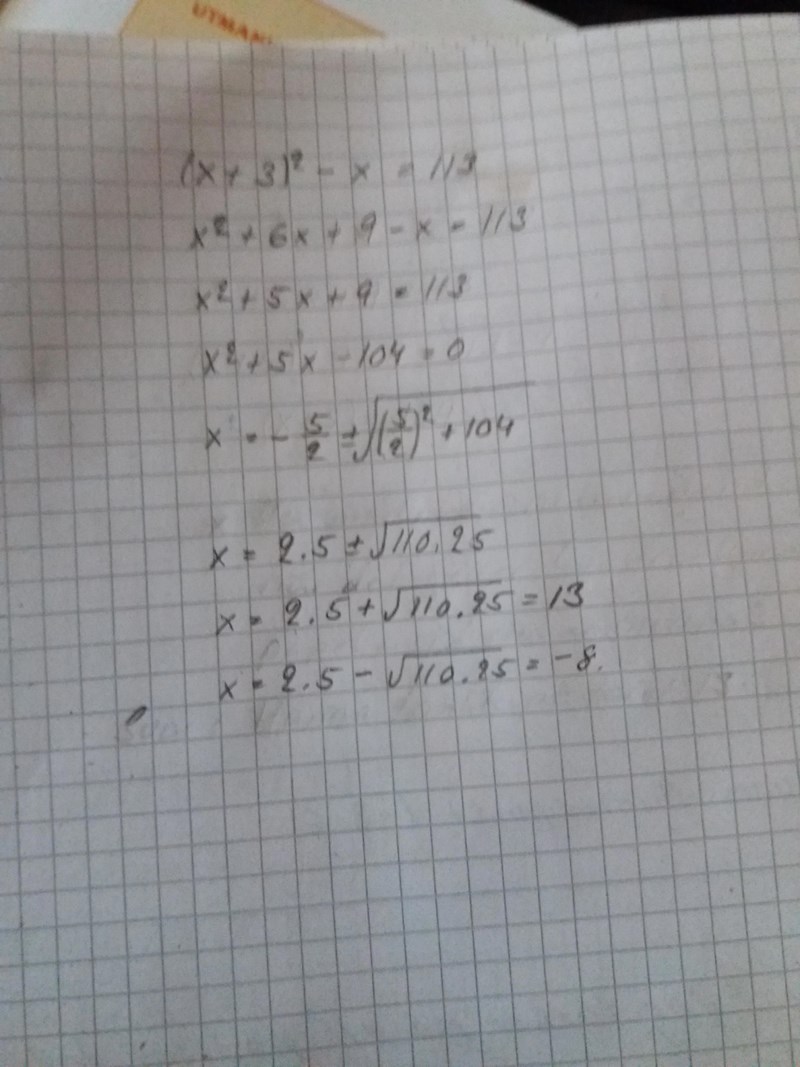 UTMAN
(x + 3)² - x = 113
x² + 6x + 9 - x = 113
x² + 5x + 9 = 113
x² + 5x - 104 = 0
x = - 5/2 ± √((5/2)² + 104)
x = 2.5 ± √110.25
x = 2.5 + √110.25 = 13
x = 2.5 - √110.25 = -8.